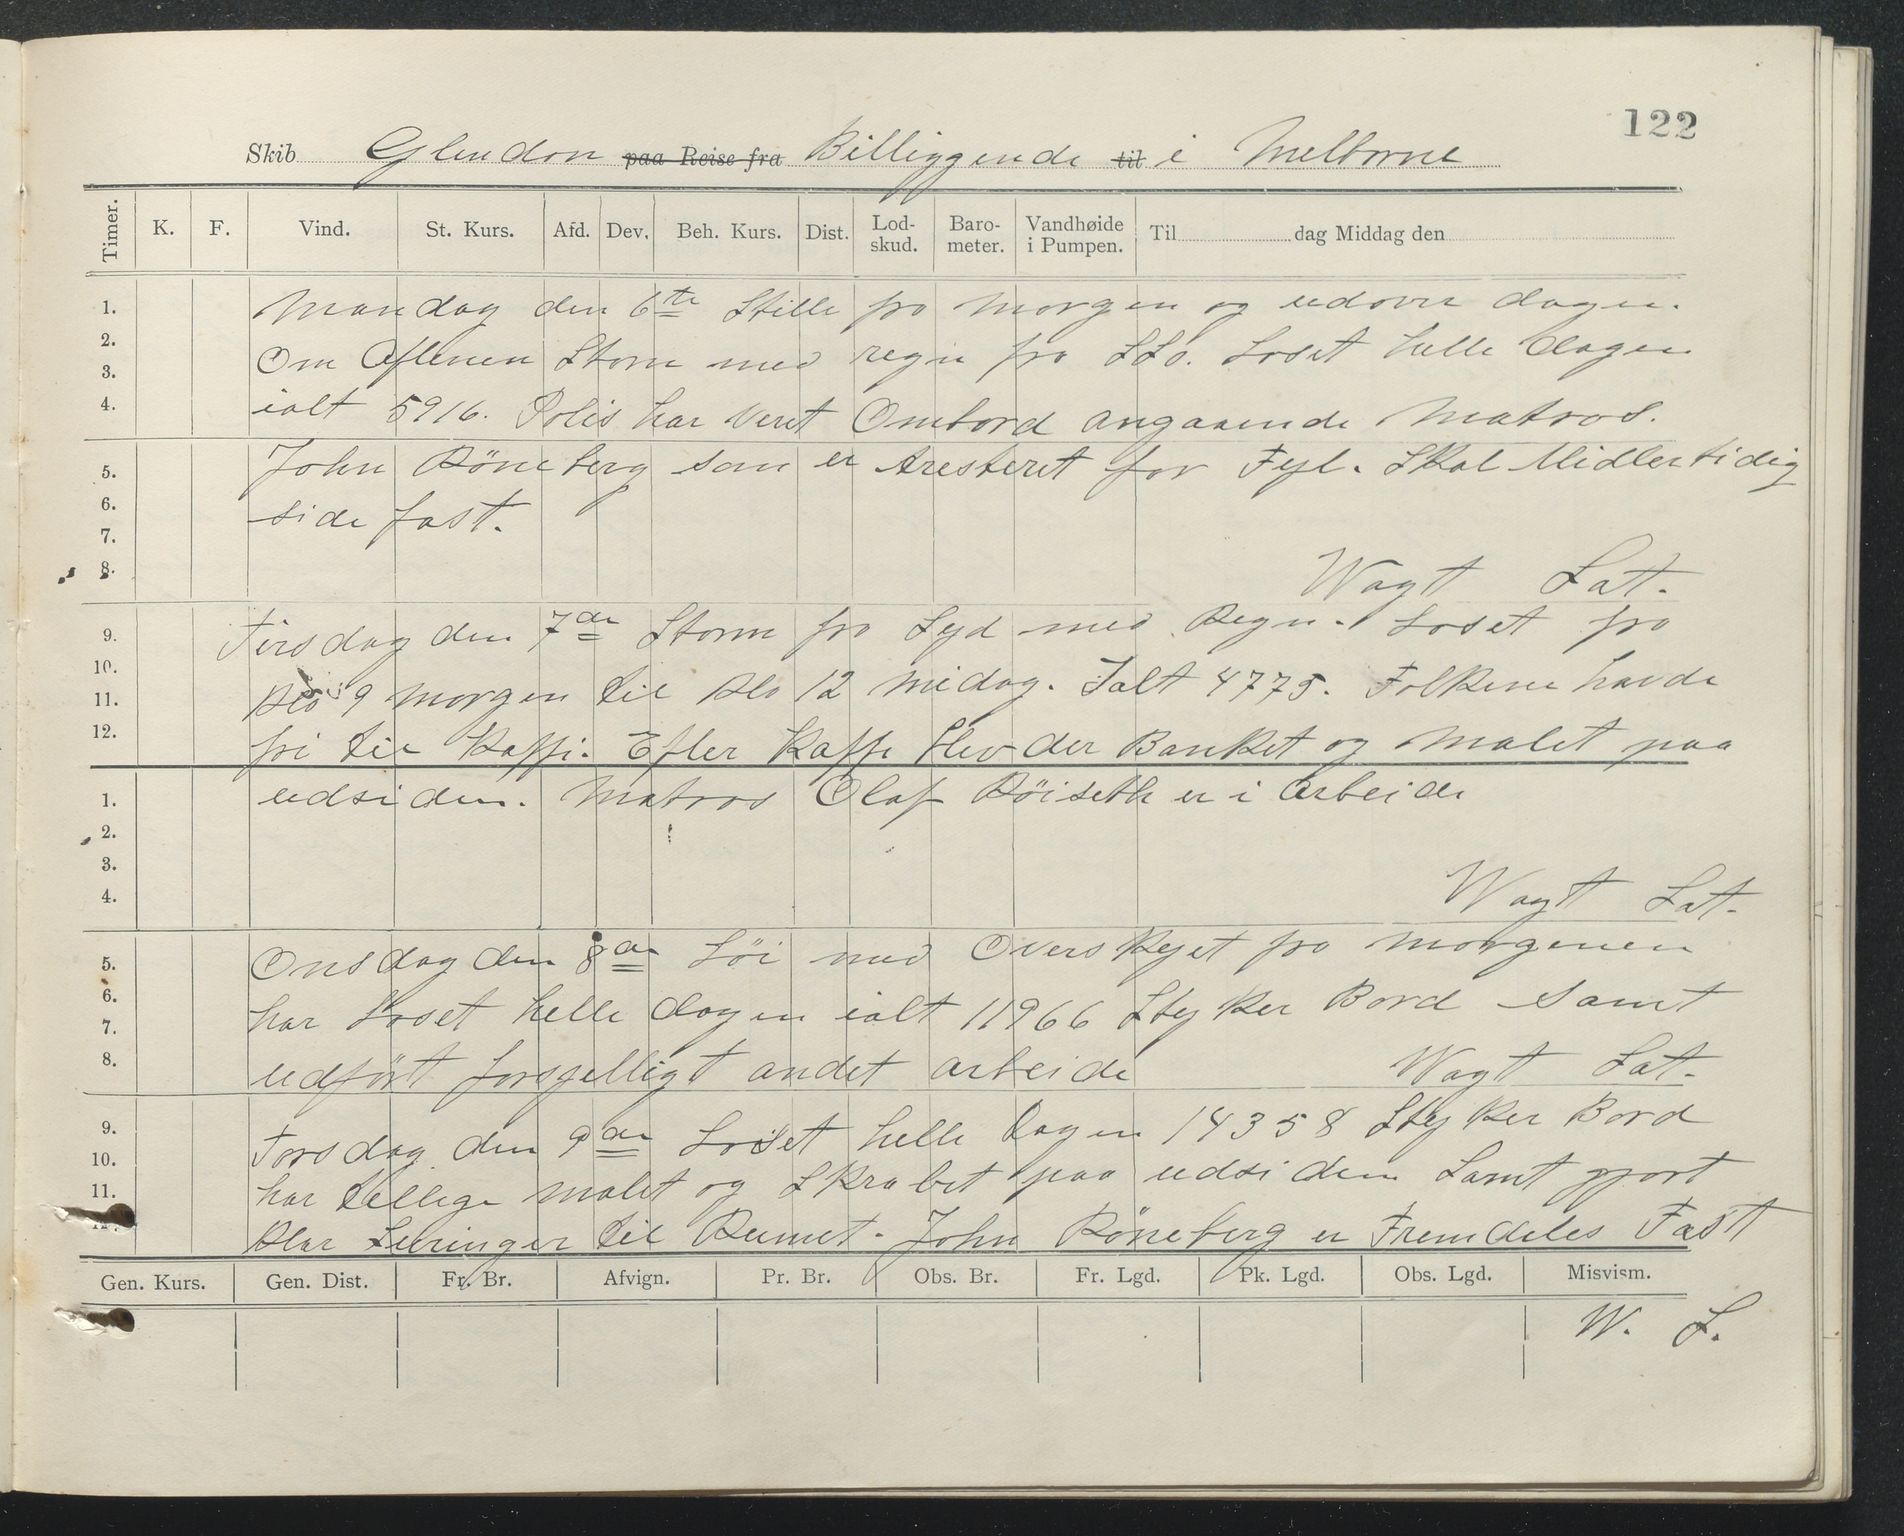 122
Skib Glendon paa Reise fra Billiggende til i Melborne
Timer. K. F. Vind. St. Kurs. Afd. Dev. Beh. Kurs. Dist. Lod-skud. Baro-meter. Vandhøide i Pumpen. Til dag Middag den
1. Mandag den 6te Stille fra morgen og udover dagen.
2. Om Aftenen Storm med regn fra SSO. Loset helle dagen
3.
4. ialt 5916. Polis har Veret Ombord angaaende Matros.
5. John Röneberg som er Aresteret for Fyl. Skal Midlertidig
6. side fast.
7.
8. Wagt Sat.
9. Tirsdag den 7de Storm fra Syd med Regn. Loset fra
10.
11. Klo 9 morgen til Klo 12 midag. Ialt 4775. Folkene havde
12. fri til Kaffi. Efter Kaffe blev der Banket og Malet paa
1. udsiden. Matros Olaf Röiseth er i Arbeide
2.
3.
4. Wagt Sat.
5. Onsdag den 8de Löi med Overskyet fra morgenen
6. har Loset helle dagen ialt 11966 Styker Bord samt
7.
8. udfört forsjelligt andet arbeide Wagt Sat.
9. Torsdag den 9de Loset helle Dagen 14358 Styker Bord
10. har tillige malet og Skrabet paa udsiden Samt gjort
11.
12. Klar Leiringer til Rumet. John Röneberg er Fremdeles Fast
Gen. Kurs. Gen. Dist. Fr. Br. Afvign. Pr. Br. Obs. Br. Fr. Lgd. Pk. Lgd. Obs. Lgd. Misvism.
W. S.